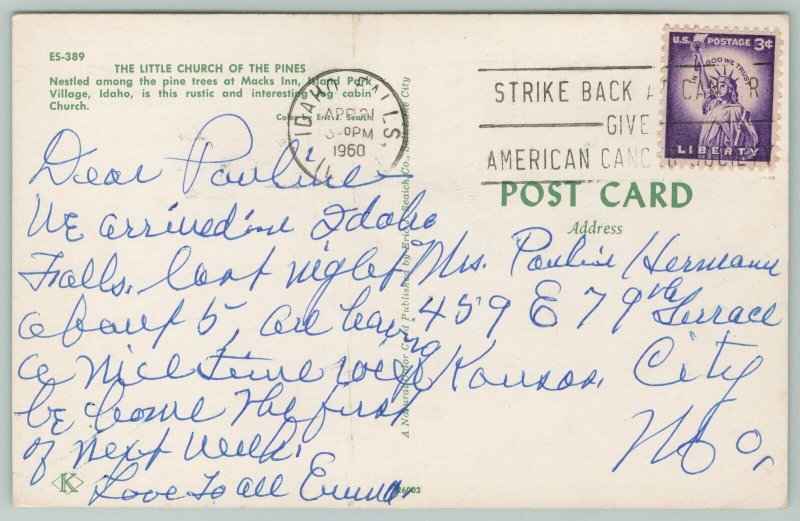 ES-389
THE LITTLE CHURCH OF THE PINES
Nestled among the pine trees at Macks Inn, Island Park
Village, Idaho, is this rustic and interesting log cabin
Church.
Color by Eric J. Seaich
IDAHO FALLS,
APR 21
PM
1960
STRIKE BACK AT CANCER
GIVE
AMERICAN CANCER SOCIETY
U.S. POSTAGE 3¢
IN GOD WE TRUST
LIBERTY
POST CARD
Address
Dear Pauline
We arrived in Idaho
Falls, last night
about 5, are having
a nice time will
be home the first
of next week.
Love to all Emma
Mrs. Pauline Hermann
459 E 79th Terrace
Kansas City
Mo,
A Natural Color Card Published by Eric J. Seaich Co., Salt Lake City
K